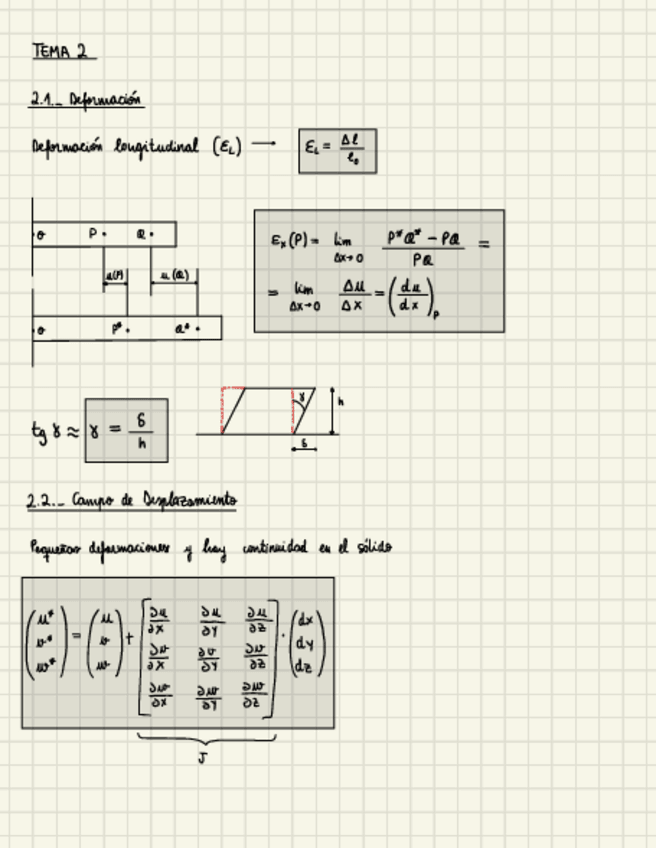 TEMA 2
2.1._ Deformación
Deformación longitudinal (ε_L) → ε_L = Δl / l₀
O P· Q·
u(P) u(Q)
O P*· Q*·
ε_x(P) = lim_{Δx→0} (P*Q* − PQ) / PQ =
= lim_{Δx→0} Δu / Δx = (du / dx)_P
γ h
δ
tg γ ≈ γ = δ / h
2.2._ Campo de Desplazamiento
Pequeñas deformaciones y hay continuidad en el sólido
(u* v* w*) = (u v w) + [∂u/∂x ∂u/∂y ∂u/∂z
∂v/∂x ∂v/∂y ∂v/∂z
∂w/∂x ∂w/∂y ∂w/∂z] · (dx dy dz)
J